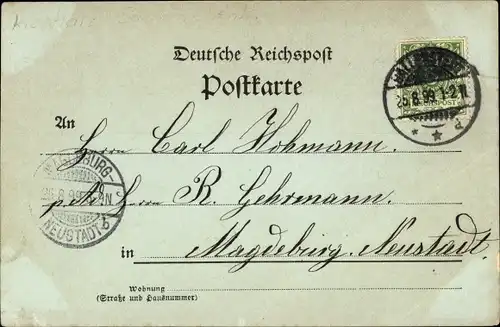 Deutsche Reichspost
Postkarte
An
Herrn Carl Hohmann.
p. A. Herrn R. Gehrmann.
in Magdeburg. Neustadt.
Wohnung
(Straße und Hausnummer)
25.8.99.1-2N.
MAGDEBURG-
NEUSTADT b